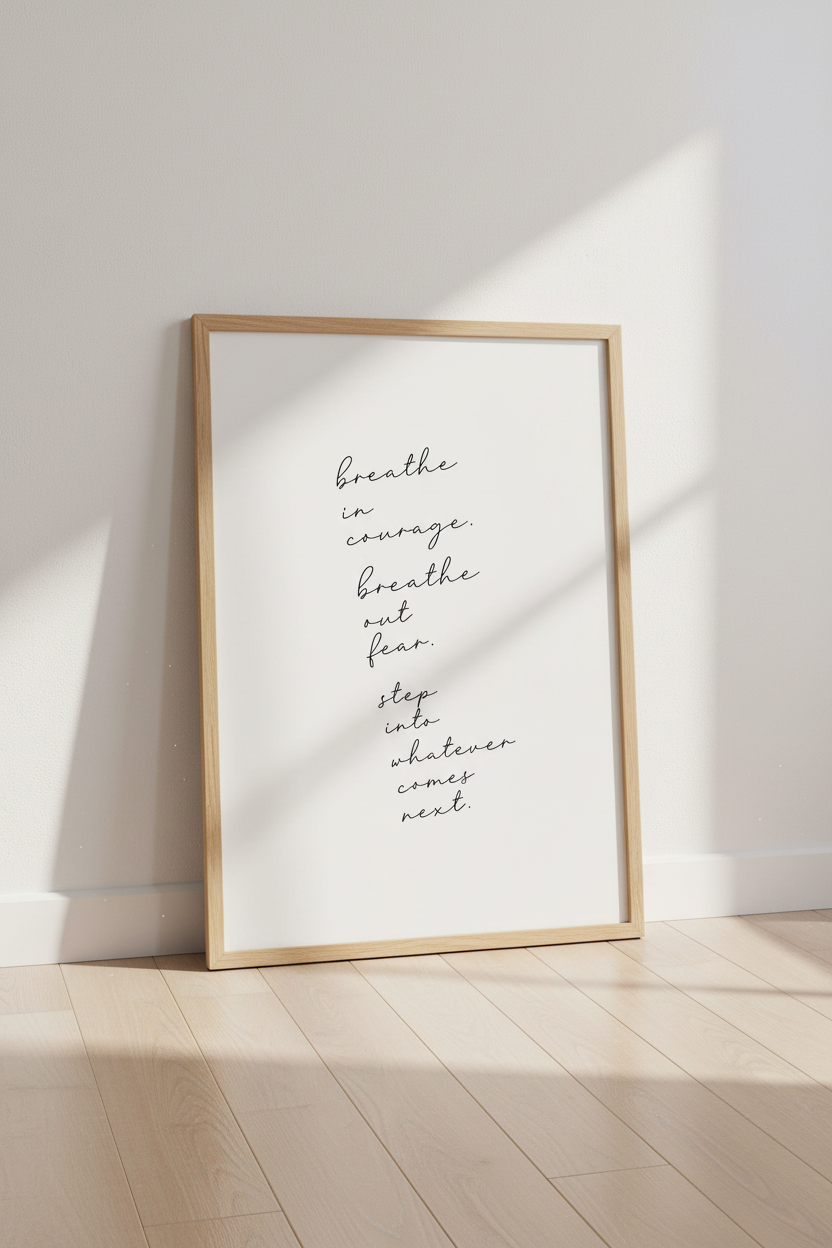 breathe
in
courage.
breathe
out
fear.
step
into
whatever
comes
next.